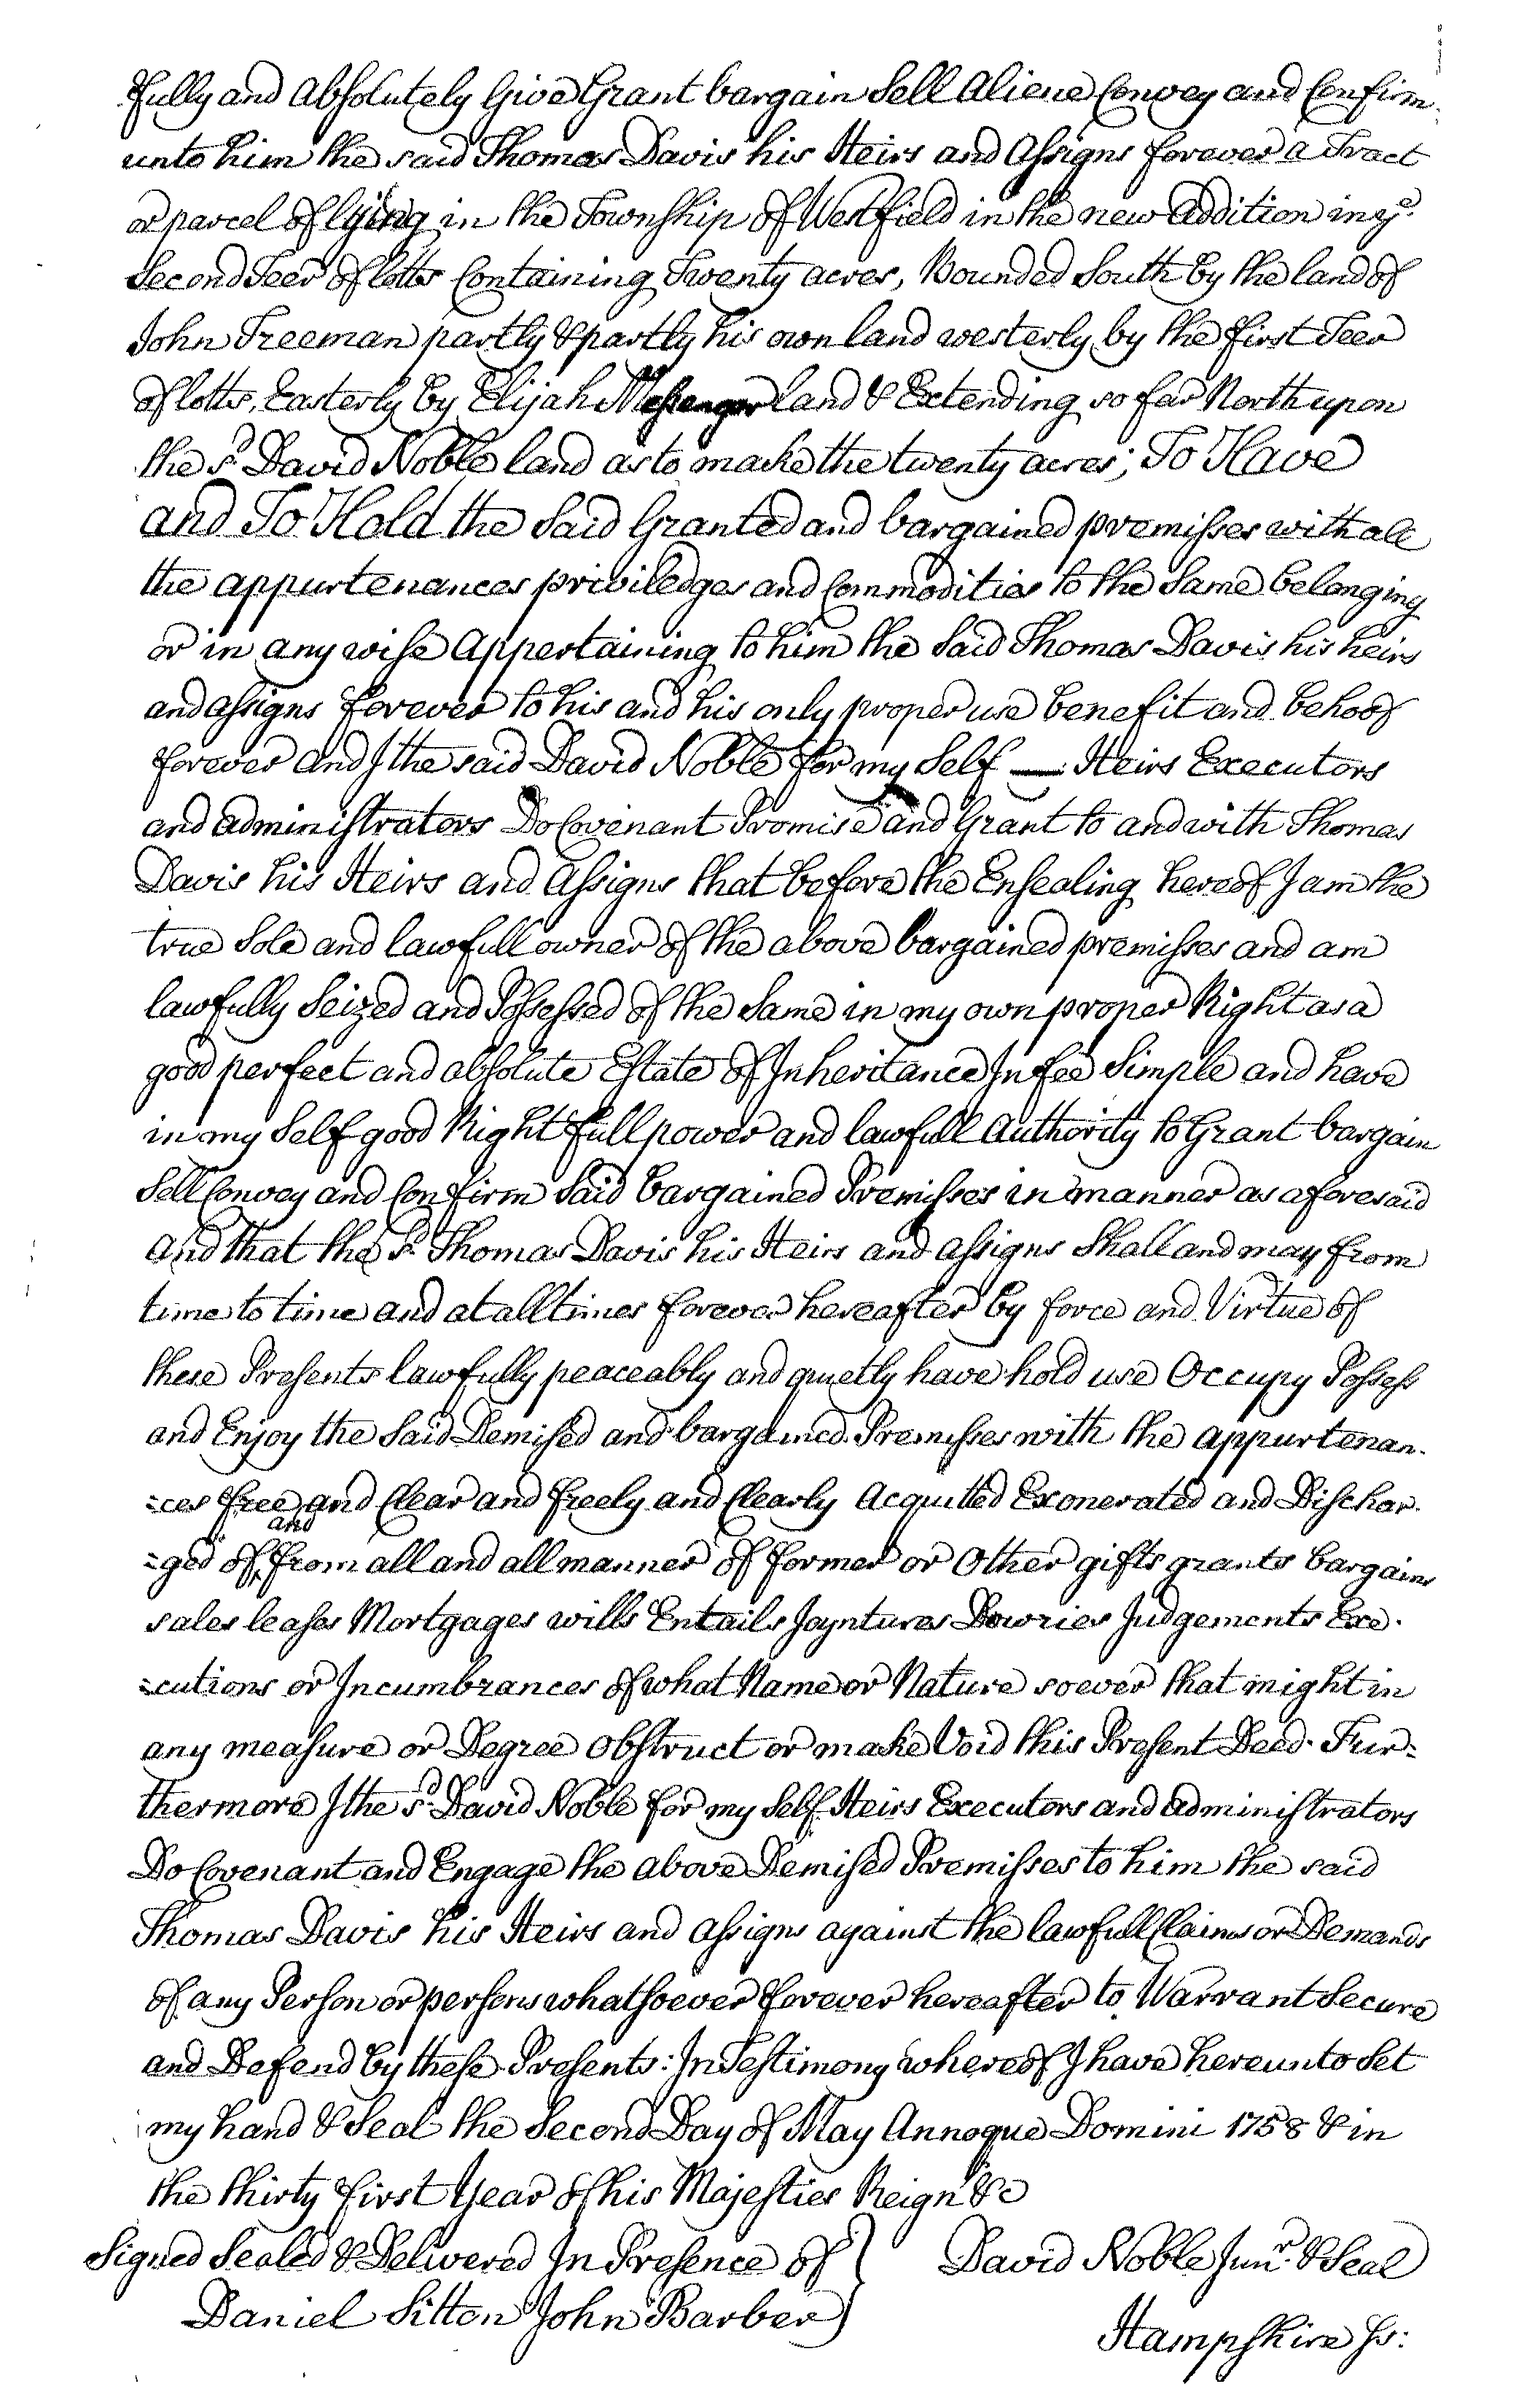 fully and Absolutely Give Grant bargain Sell Aliene Convey and Confirm
unto him the said Thomas Davis his Heirs and Assigns forever a Tract
or parcel of lying in the Township of Westfield in the new addition in ye
Second Teer of lotts Containing Twenty acres, Bounded South by the land of
John Freeman partly & partly his own land westerly by the first Teer
of lotts, Easterly by Elijah Messenger land & Extending so far North upon
the sd David Noble land as to make the twenty acres; To Have
and To Hold the Said Granted and bargained premisses with all
the appurtenances priviledges and Commodities to the Same belonging
or in any wise Appertaining to him the Said Thomas Davis his heirs
and assigns forever to his and his only proper use benefit and behoof
forever And I the said David Noble for my Self — Heirs Executors
and administrators Do Covenant Promise and Grant to and with Thomas
Davis his Heirs and Assigns that before the Ensealing hereof I am the
true Sole and lawfull owner of the above bargained premisses and am
lawfully Seized and Possessed of the Same in my own proper Right as a
good perfect and absolute Estate of Inheritance In fee Simple and have
in my Self good Right full power and lawfull Authority to Grant bargain
Sell Convey and Confirm Said bargained Premisses in manner as aforesaid
And that the sd Thomas Davis his Heirs and assigns Shall and may from
time to time and at all times forever hereafter by force and Virtue of
these Presents lawfully peaceably and quietly have hold use Occupy Possess
and Enjoy the Said Demised and bargained Premisses with the appurtenan-
-ces free and Clear and freely and Clearly Acquitted Exonerated and Dischar-
-ged of, and from all and all manner of former or Other gifts grants bargains
sales leases Mortgages wills Entails Joyntures Dowries Judgements Exe-
-cutions or Incumbrances of what Name or Nature soever that might in
any measure or Degree Obstruct or make Void this Present Deed. Fur-
thermore I the sd David Noble for my Self Heirs Executors and administrators
Do Covenant and Engage the above Demised Premisses to him the said
Thomas Davis his Heirs and assigns against the lawfull Claims or Demands
of any Person or persons whatsoever forever hereafter to Warrant Secure
and Defend by these Presents: In Testimony whereof I have hereunto Set
my hand & Seal the Second Day of May Annoque Domini 1758 & in
the thirty first Year of his Majesties Reign &c
Signed Sealed & Delivered In Presence of } David Noble Junr. & Seal
Daniel Sitton John Barber
Hampshire ss: